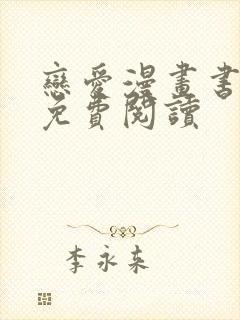 戀愛漫畫書
免費閱讀
李永來